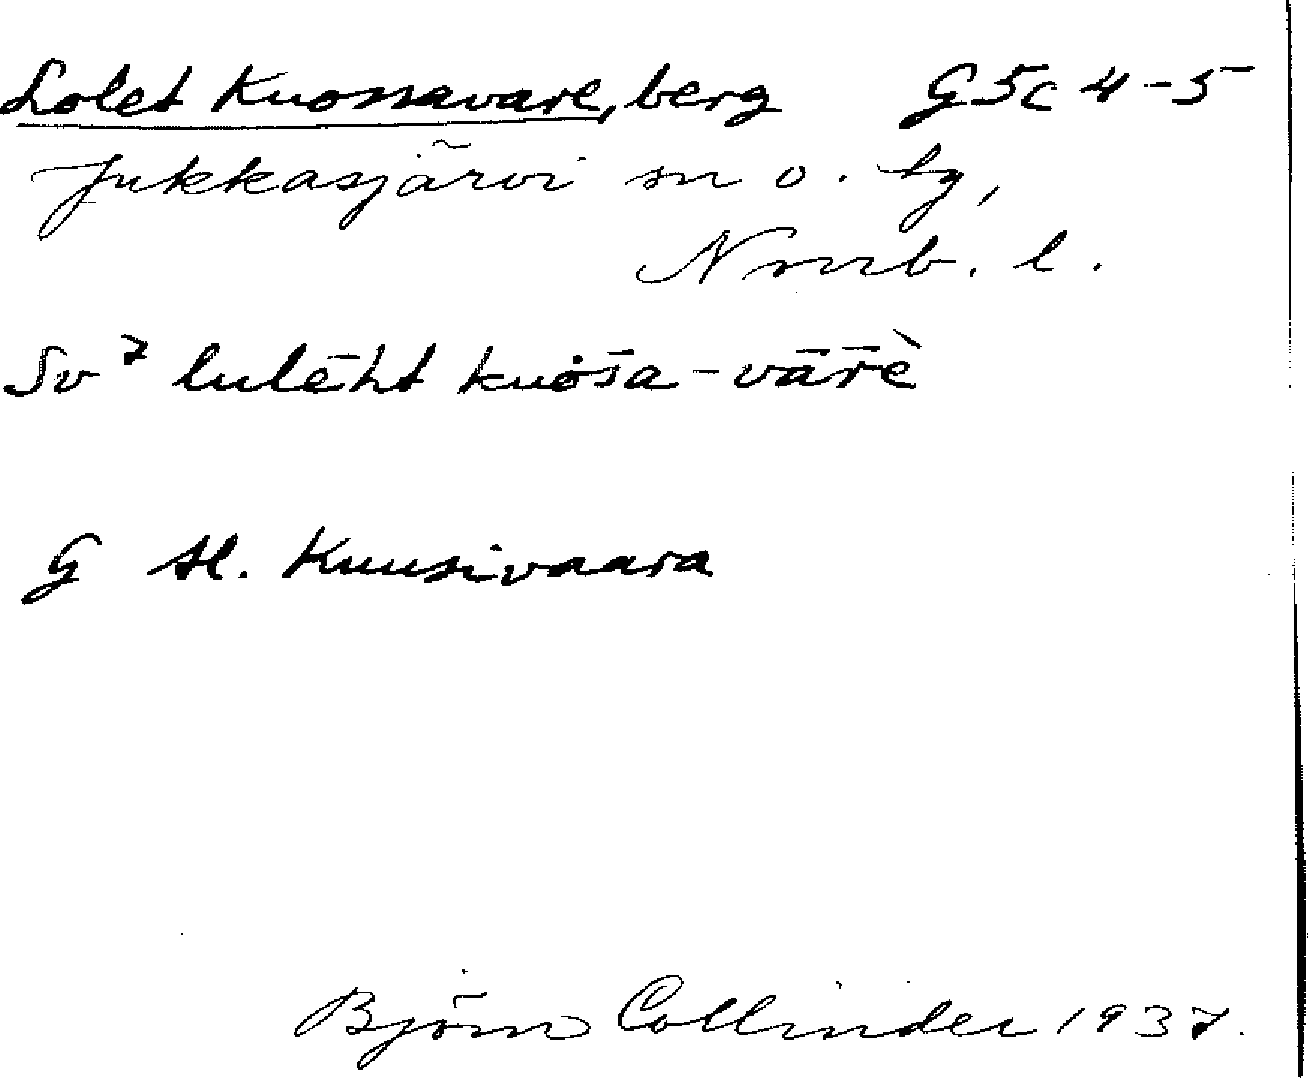 Lolet Kuossavare, berg G5c 4-5
Jukkasjärvi sn o. tg,
Nmrb. l.
Sv⁷ lulēht kuosa-vārè
G st. Kuusivaara
Björn Collinder 1937.